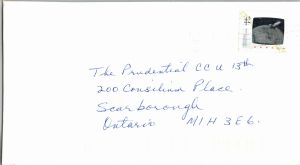 The Prudential CCU 13th
200 Consilium Place.
Scarborough
Ontario M1H 3E6.